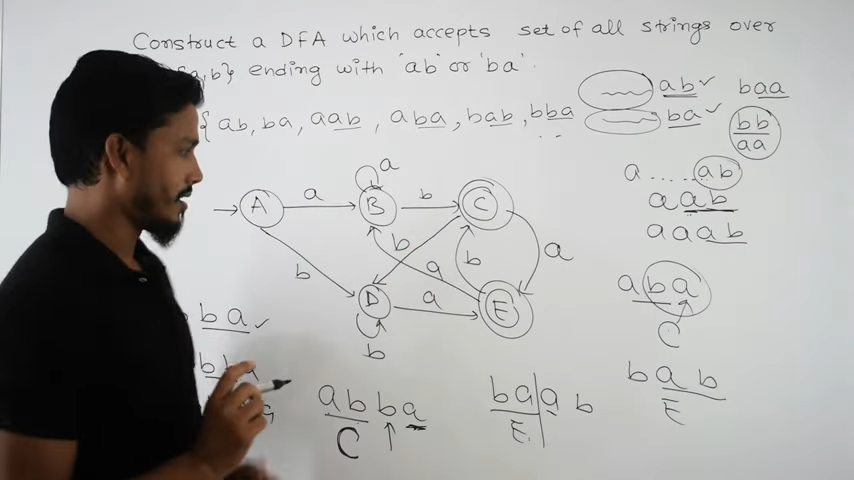 Construct a DFA which accepts set of all strings over
a,b} ending with 'ab' or 'ba'.
{ab, ba, aab, aba, bab, bba
...
ab ✓ baa
ba ✓ bb
aa
a.....ab
aab
aaab
A a B b C a
a
b
b
a
b
D a E
b
aba
C
ba ✓
abba
C
ba|a b
E
bab
E